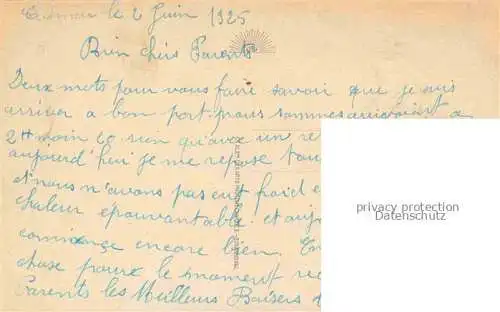 le 2 Juin 1925
Bien chèrs Parents
Deux mots pour vous faire savoir que je suis
arriver a bon port nous sommes arrivaient a
2H moin 20 rien qu'avec un re
aujord'hui je me repose tou
et nous n'avons pas eut froid e
chaleur épouvantable et aujo
commence encore bien. En
chose pour le moment re
Parents les Meilleurs Baisers
privacy protection
Datenschutz